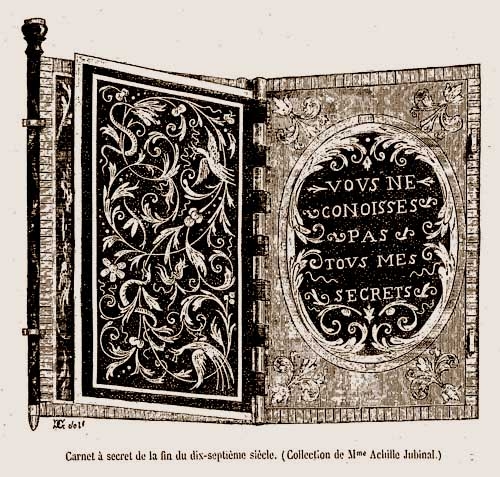 VOVS NE
CONOISSES
PAS
TOVS MES
SECRETS
Carnet à secret de la fin du dix-septième siècle. (Collection de Mme Achille Jubinal.)